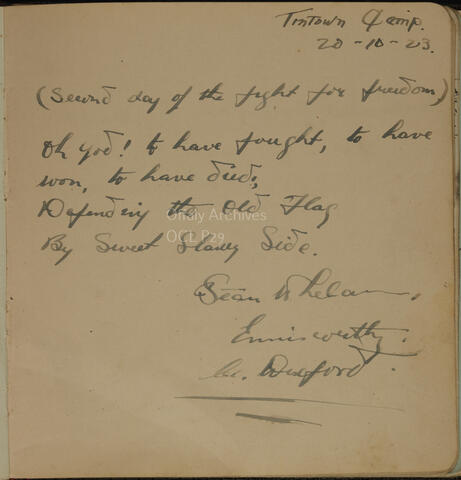 Tintown Camp.
20-10-23.
(Second day of the fight for freedom)
Oh God! to have fought, to have
won, to have died,
Defending the Old Flag
By Sweet Slaney Side.
Seán Whelan,
Enniscorthy.
Co. Wexford.
Offaly Archives
OCL P29